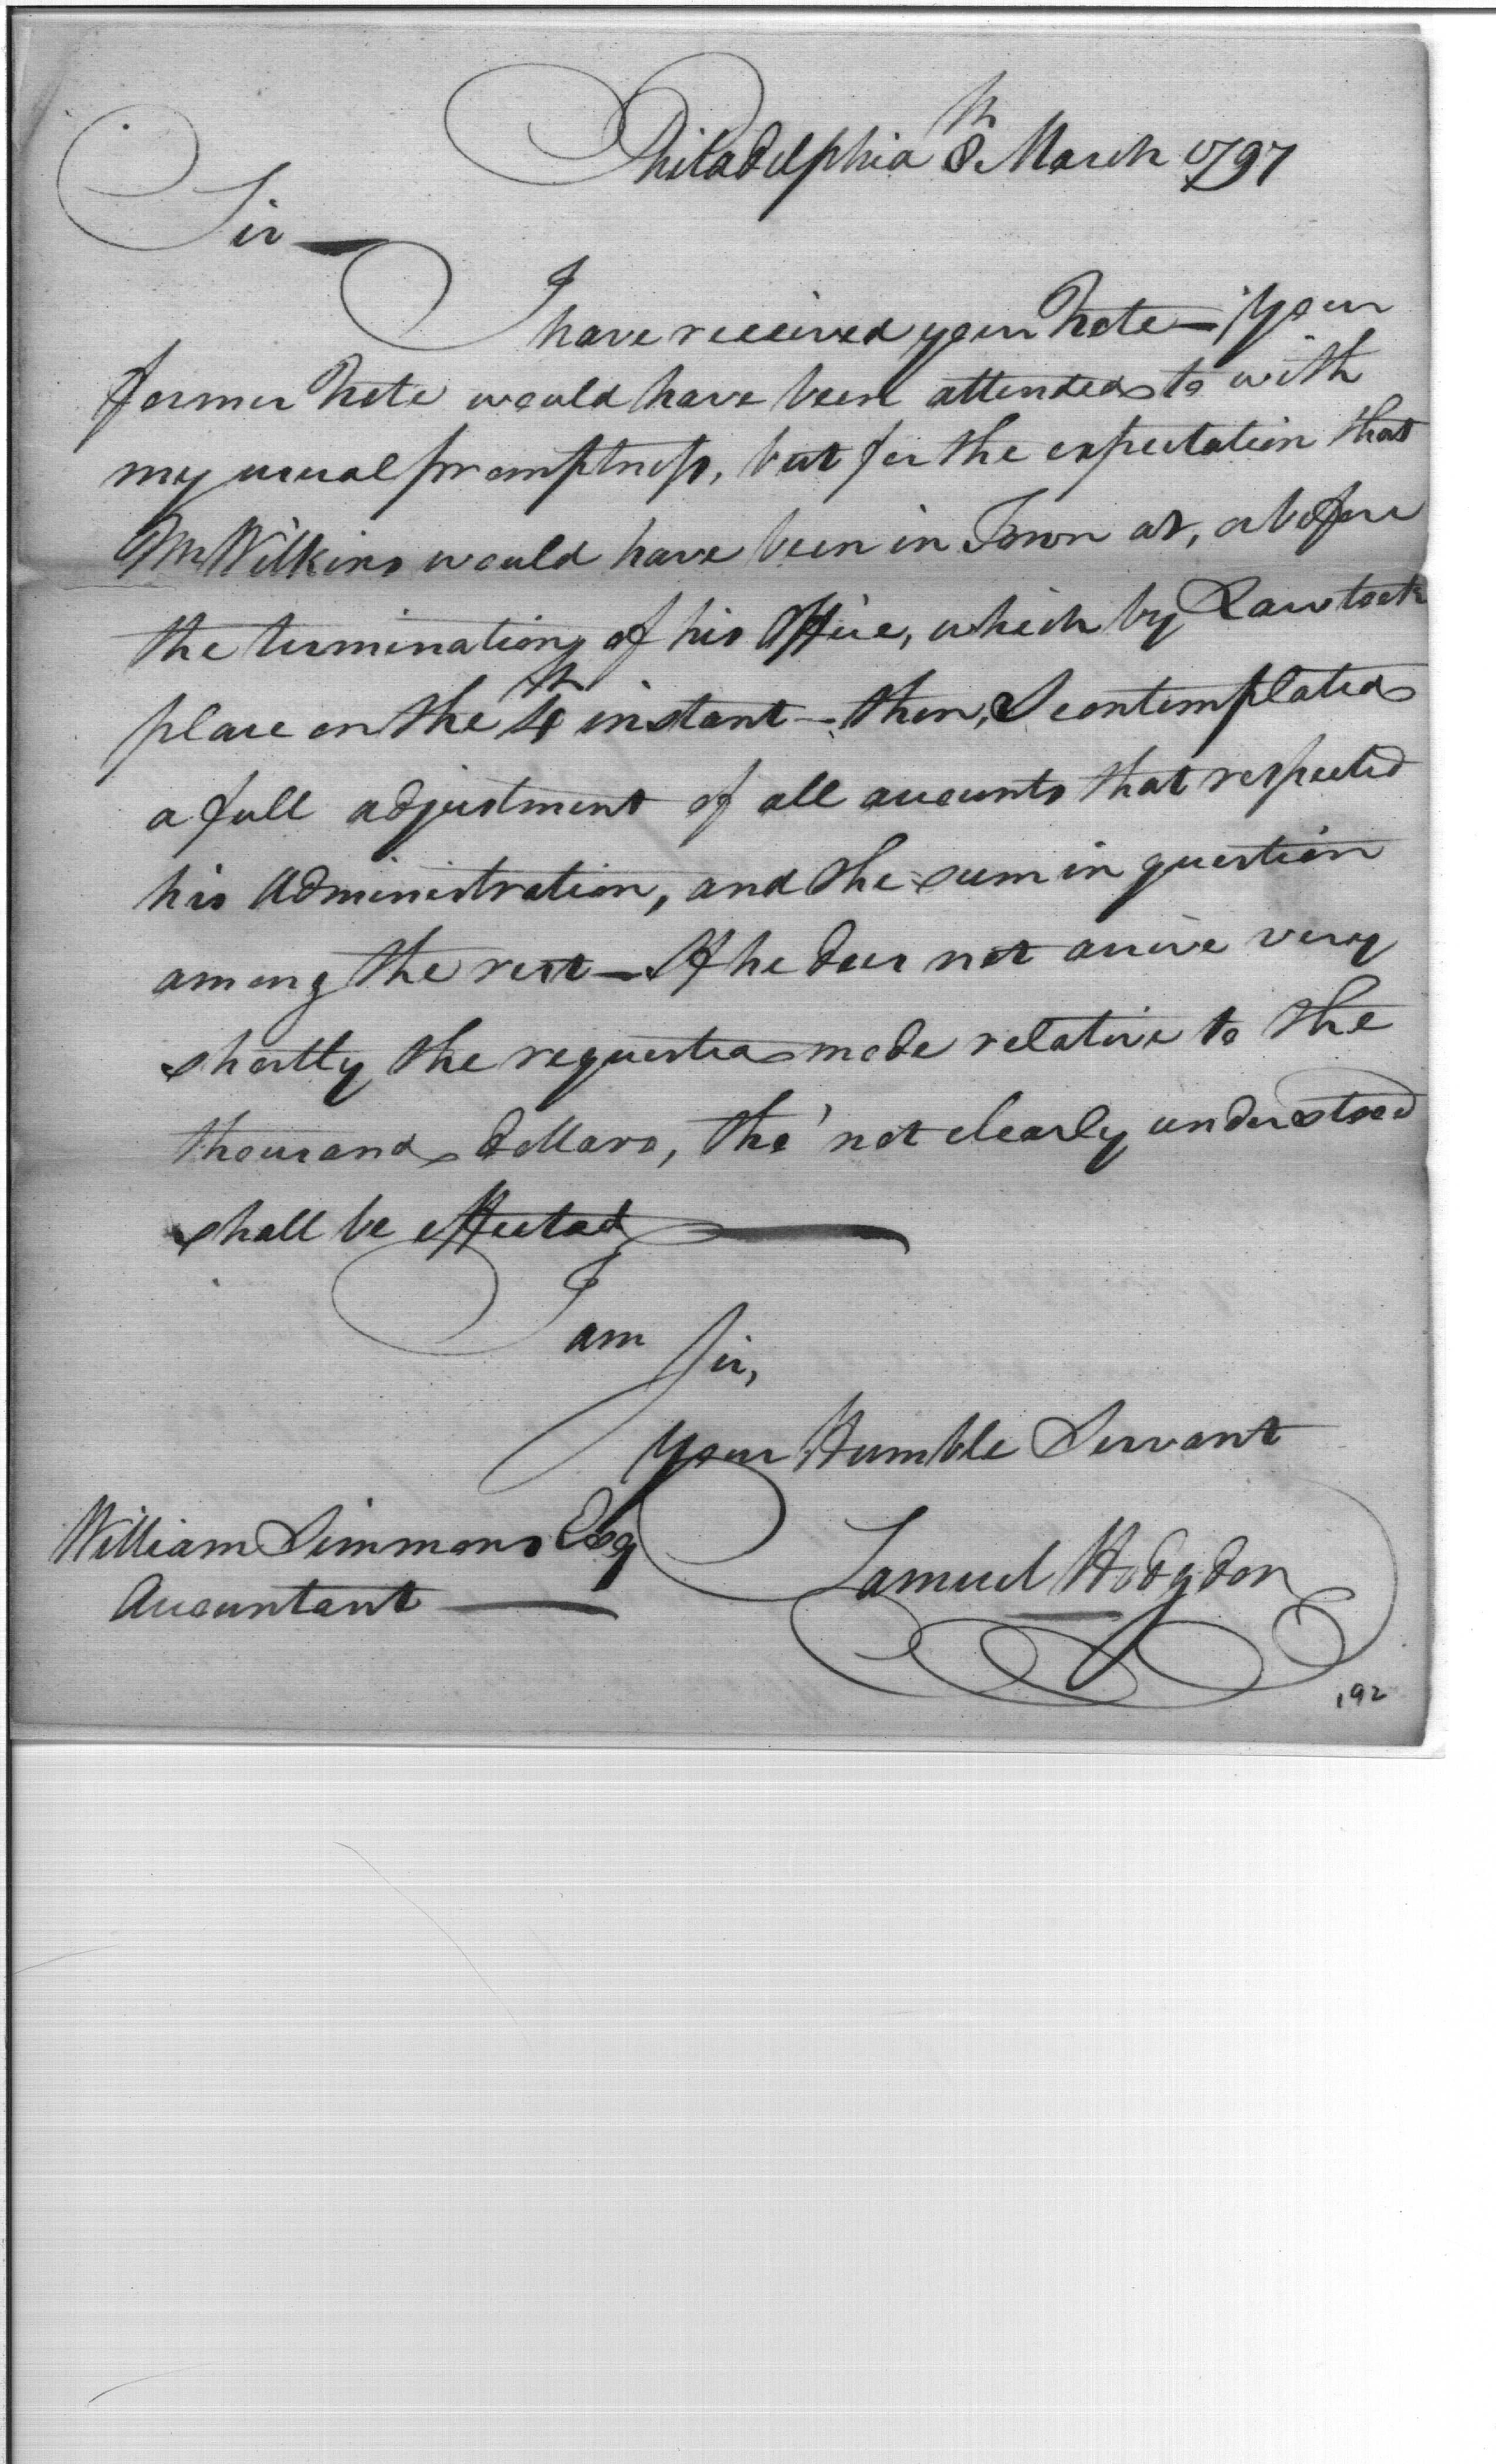 Philadelphia 8th March 1797
Sir —
I have received your Note — Your
former Note would have been attended to with
my usual promptness, but for the expectation that
Mr Wilkins would have been in Town at, or before
the termination of his Office, which by Law took
place on the 4th instant — then, I contemplated
a full adjustment of all accounts that respected
his Administration, and the sum in question
among the rest — If he does not arrive very
shortly the request made relative to the
thousand dollars, tho' not clearly understood
shall be effected
I am
Sir,
Your Humble Servant
William Simmons Esq
Accountant —
Samuel Hodgdon
192